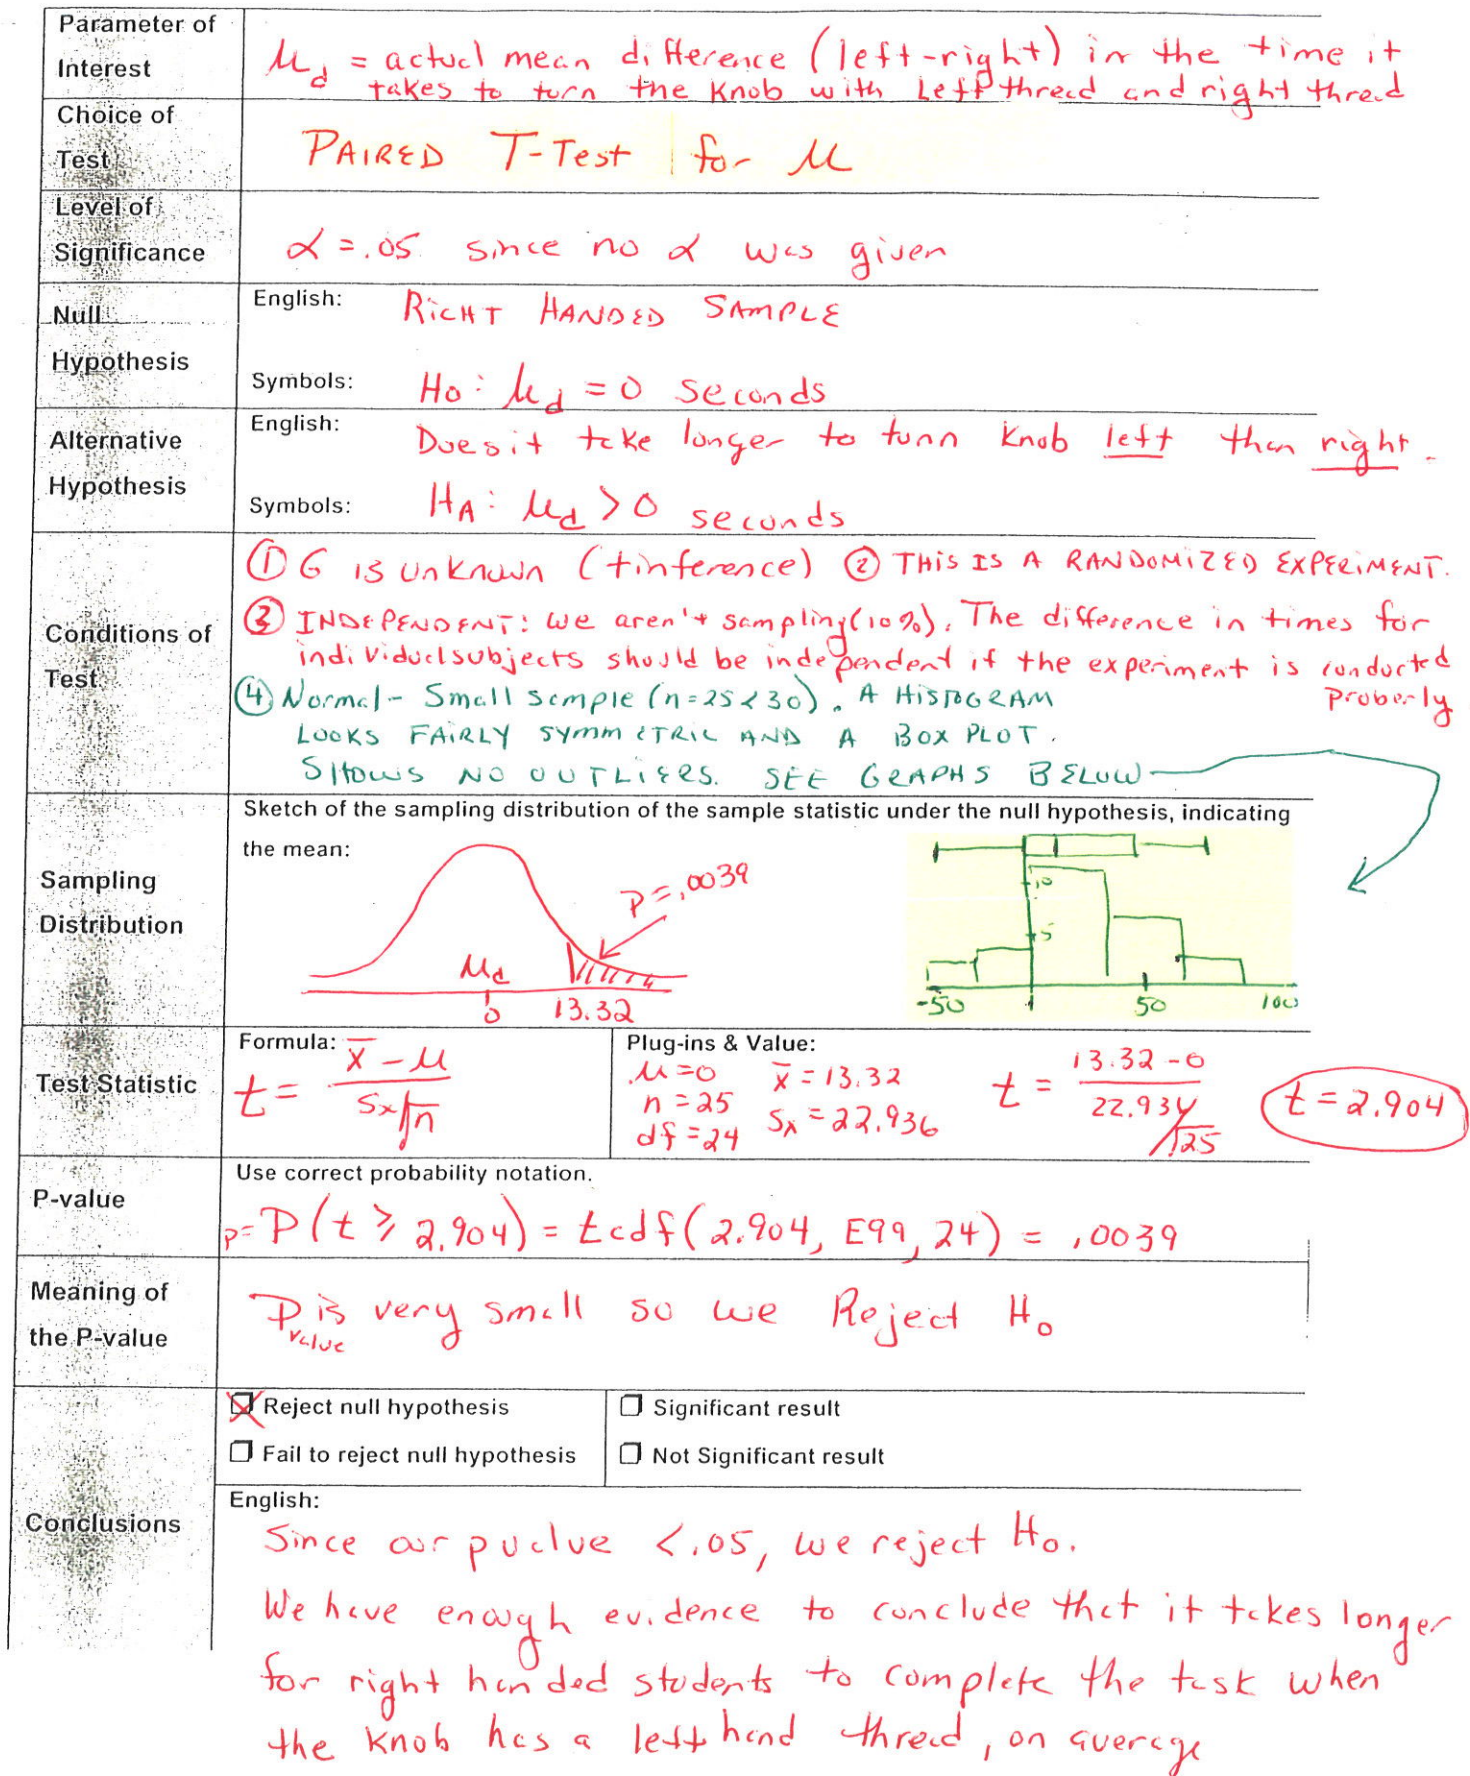 Parameter of
Interest
μd = actual mean difference (left-right) in the time it
takes to turn the knob with Left thread and right thread
Choice of
Test
PAIRED T-Test for μ
Level of
Significance
α = .05 since no α was given
Null
Hypothesis
English: RIGHT HANDED SAMPLE
Symbols: Ho: μd = 0 seconds
Alternative
Hypothesis
English: Does it take longer to turn knob left than right.
Symbols: HA: μd > 0 seconds
Conditions of
Test
① σ is unknown (t inference) ② THIS IS A RANDOMIZED EXPERIMENT.
③ INDEPENDENT: we aren't sampling (10%). The difference in times for
individual subjects should be independent if the experiment is conducted
proberly
④ Normal - Small sample (n=25<30). A HISTOGRAM
LOOKS FAIRLY SYMMETRIC AND A BOX PLOT.
SHOWS NO OUTLIERS. SEE GRAPHS BELOW
Sampling
Distribution
Sketch of the sampling distribution of the sample statistic under the null hypothesis, indicating
the mean:
P=.0039
μd
0 13.32
10
5
-50 50 100
Test Statistic
Formula: t = x̄ - μ / sx/√n
Plug-ins & Value:
μ=0 x̄ = 13.32
n = 25 Sx = 22.936
df = 24
t = 13.32 - 0 / 22.936/√25
t = 2.904
P-value
Use correct probability notation.
p= P(t ≥ 2.904) = tcdf(2.904, E99, 24) = .0039
Meaning of
the P-value
P value is very small so we Reject Ho
Conclusions
Reject null hypothesis
Fail to reject null hypothesis
Significant result
Not Significant result
English:
Since our pvalue <.05, we reject Ho.
We have enough evidence to conclude that it takes longer
for right handed students to complete the task when
the knob has a left hand thread, on average